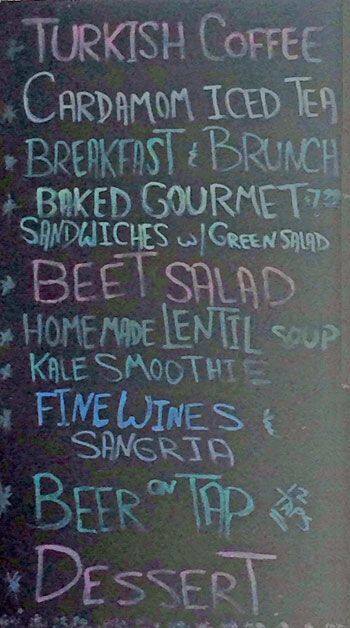 TURKISH COFFEE
CARDAMOM ICED TEA
BREAKFAST & BRUNCH
BAKED GOURMET
SANDWICHES w/ GREEN SALAD
BEET SALAD
HOMEMADE LENTIL SOUP
KALE SMOOTHIE
FINE WINES &
SANGRIA
BEER ON TAP
DESSERT